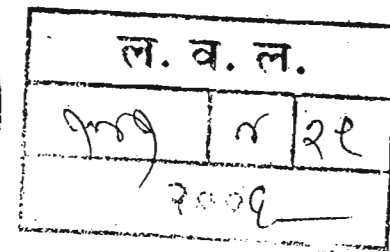 ल. व. ल.
१७१ ४ २९
२००६